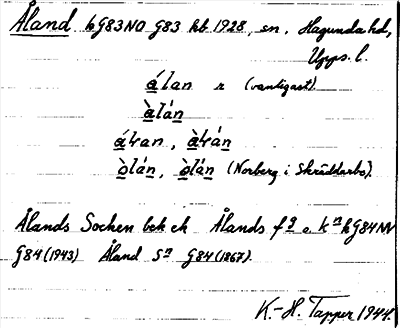 Åland bG83NO G83 kb 1928, sn, Hagunda hd,
Upps. l.
álan r (vanligast).
àlán
áran, àrán
òlán, òlán (Norberg i Skräddarbo).
Ålands Socken bek ek Ålands fg o. kn kG84NV
G84 (1943) Åland Sn G84 (1867).
K.-H. Tapper 1944.